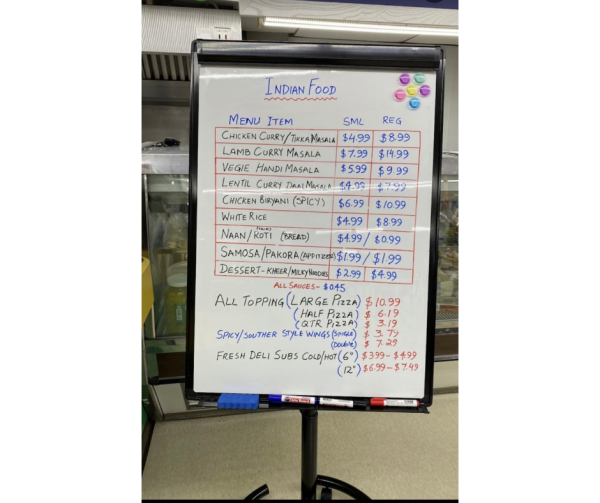 INDIAN FOOD
MENU ITEM SML REG
CHICKEN CURRY/TIKKA MASALA $4.99 $8.99
LAMB CURRY MASALA $7.99 $14.99
VEGIE HANDI MASALA $5.99 $9.99
LENTIL CURRY DAAL MASALA $4.99 $7.99
CHICKEN BIRYANI (SPICY) $6.99 $10.99
WHITE RICE $4.99 $8.99
NAAN/ROTI (BREAD) $4.99/$0.99
SAMOSA/PAKORA (APPITIZER) $1.99/$1.99
DESSERT-KHEER/MILKY NOODLES $2.99 $4.99
ALL SAUCES- $0.45
ALL TOPPING (LARGE PIZZA) $10.99
(HALF PIZZA) $ 6.19
(QTR PIZZA) $ 3.19
SPICY/SOUTHER STYLE WINGS (SINGLE) $ 3.79
(DOUBLE) $ 7.29
FRESH DELI SUBS COLD/HOT (6") $3.99-$4.99
(12") $6.99-$7.49